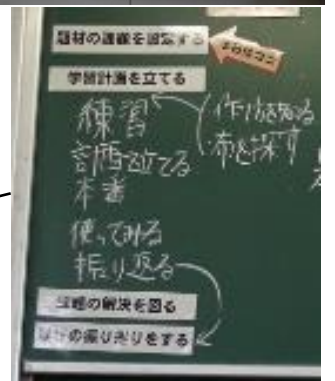 題材の課題を設定する
学習計画を立てる
練習
作り方を知る
計画を立てる
布を探す
本番
使ってみる
振り返る
課題の解決を図る
の振り返りをする